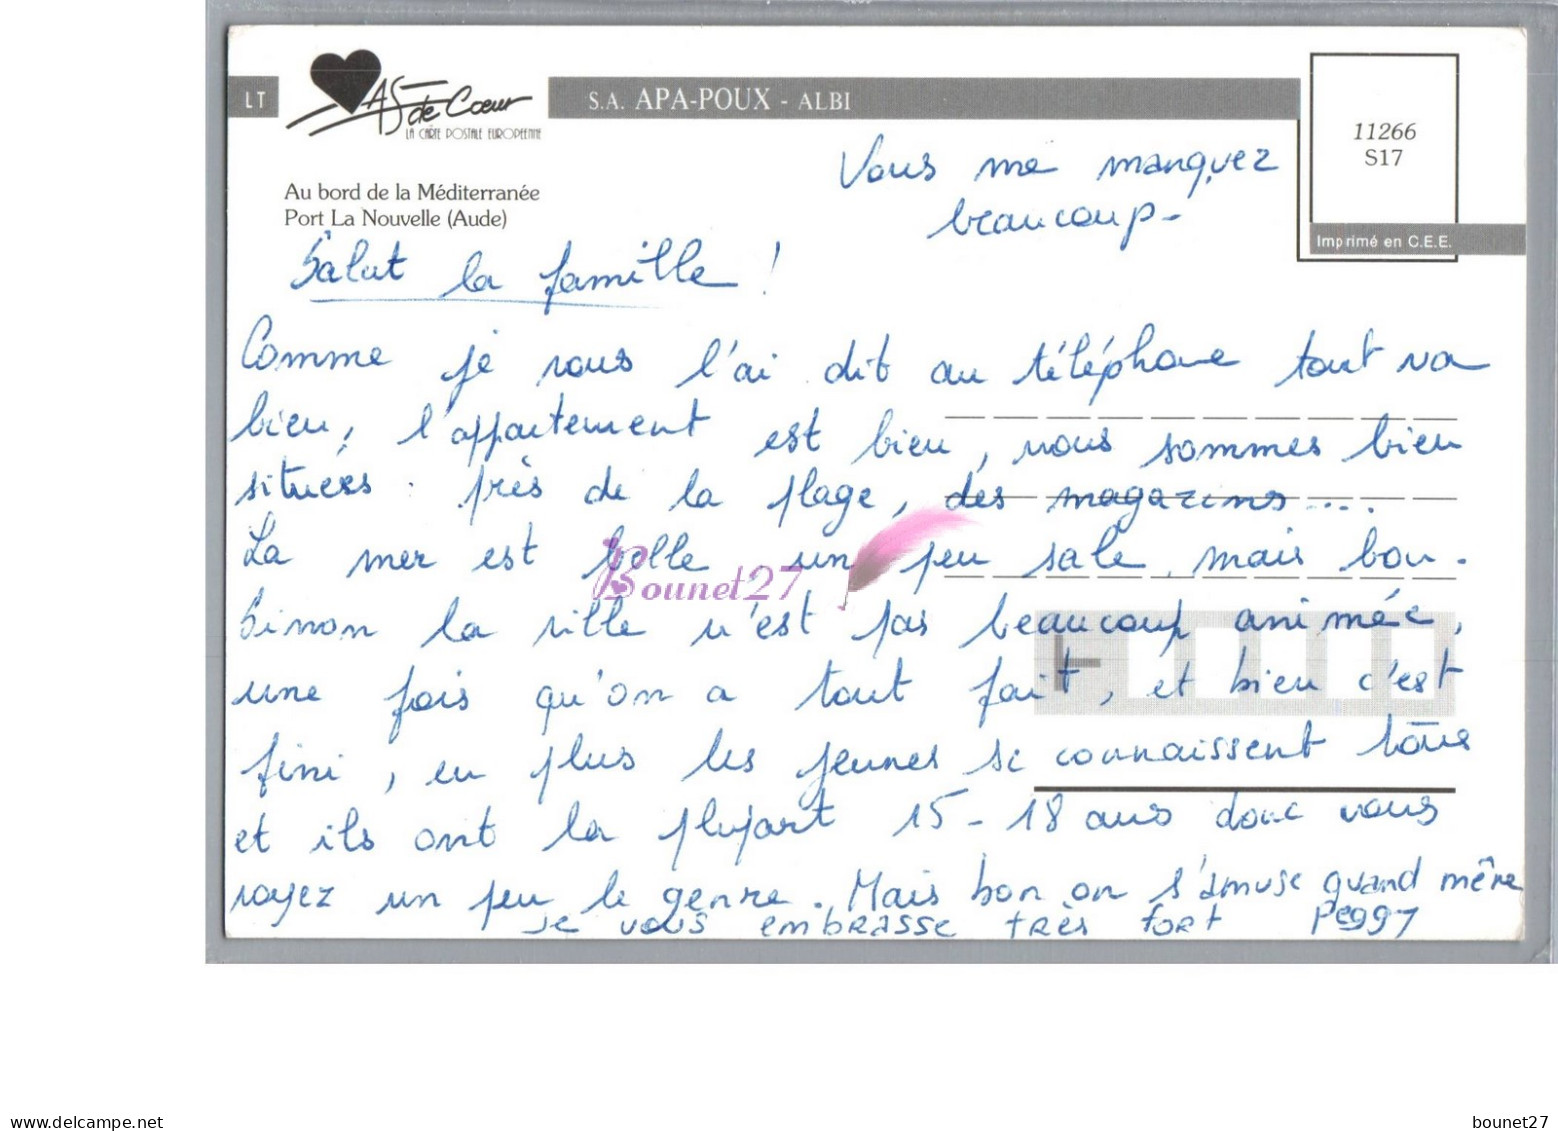 LT
AS de Cœur
LA CARTE POSTALE EUROPEENNE
S.A. APA-POUX - ALBI
11266
S17
Imprimé en C.E.E.
Au bord de la Méditerranée
Port La Nouvelle (Aude)
Vous me manquez
beaucoup -
Salut la famille !
Comme je vous l'ai dit au téléphone tout va
bien, l'appartement est bien, nous sommes bien
situées : près de la plage, des magazins ....
La mer est belle un peu sale, mais bon -
Sinon la ville n'est pas beaucoup animée,
une fois qu'on a tout fait, et bien c'est
fini, en plus les jeunes se connaissent tous
et ils ont la plupart 15 - 18 ans donc vous
voyez un peu le genre. Mais bon on s'amuse quand même
je vous embrasse très fort Peggy
Bounet27
www.delcampe.net
bounet27